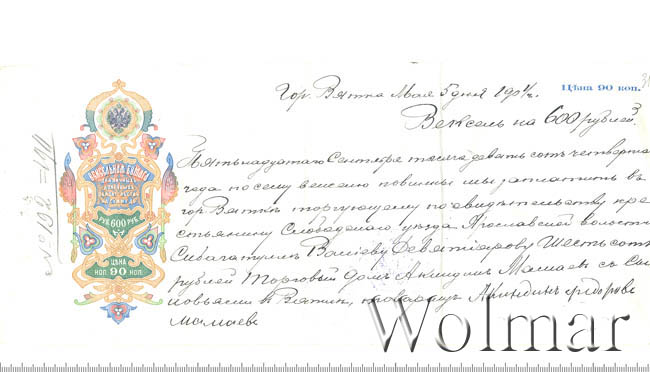 Гор. Вятка Мая 5 дня 1904 г.
Цѣна 90 коп.
Вексель на 600 рублей
Пятнадцатаго Сентября тысяча девять сотъ четвертаго
года по сему векселю повинны мы заплатить въ
гор. Вяткѣ торгующему по свидѣтельству кре
стьянину Слободскаго уѣзда волости
Шесть сотъ
рублей Торговый Домъ Акиндинъ Мамаевъ съ Сы
новьями въ Вяткѣ, Акиндинъ Федоровъ
Мамаевъ
ВЕКСЕЛЬНАЯ БУМАГА
РУБ 600 РУБ
ЦѢНА
КОП. 90 КОП.
Wolmar